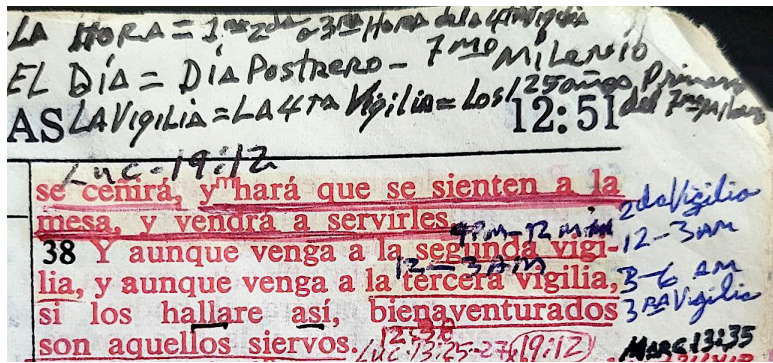 LA HORA = 1ra 2da o 3ra Hora de la 4ta Vigilia
EL DÍA = DÍA Postrero - 7mo Milenio
LA Vigilia = LA 4TA Vigilia = Los 125 años Primeros del 7mo Milenio
AS 12:51
Luc. 19:12
se ceñirá, y m hará que se sienten a la
mesa, y vendrá a servirles.
2da Vigilia
9 PM-12
38 Y aunque venga a la segunda vigi-
12-3 AM
12-3 AM
lia, y aunque venga a la tercera vigilia,
3-6 AM
si los hallare así, bienaventurados
3RA Vigilia
son aquellos siervos.
12:38
Luc. 13:25-27
19:12
Marc. 13:35